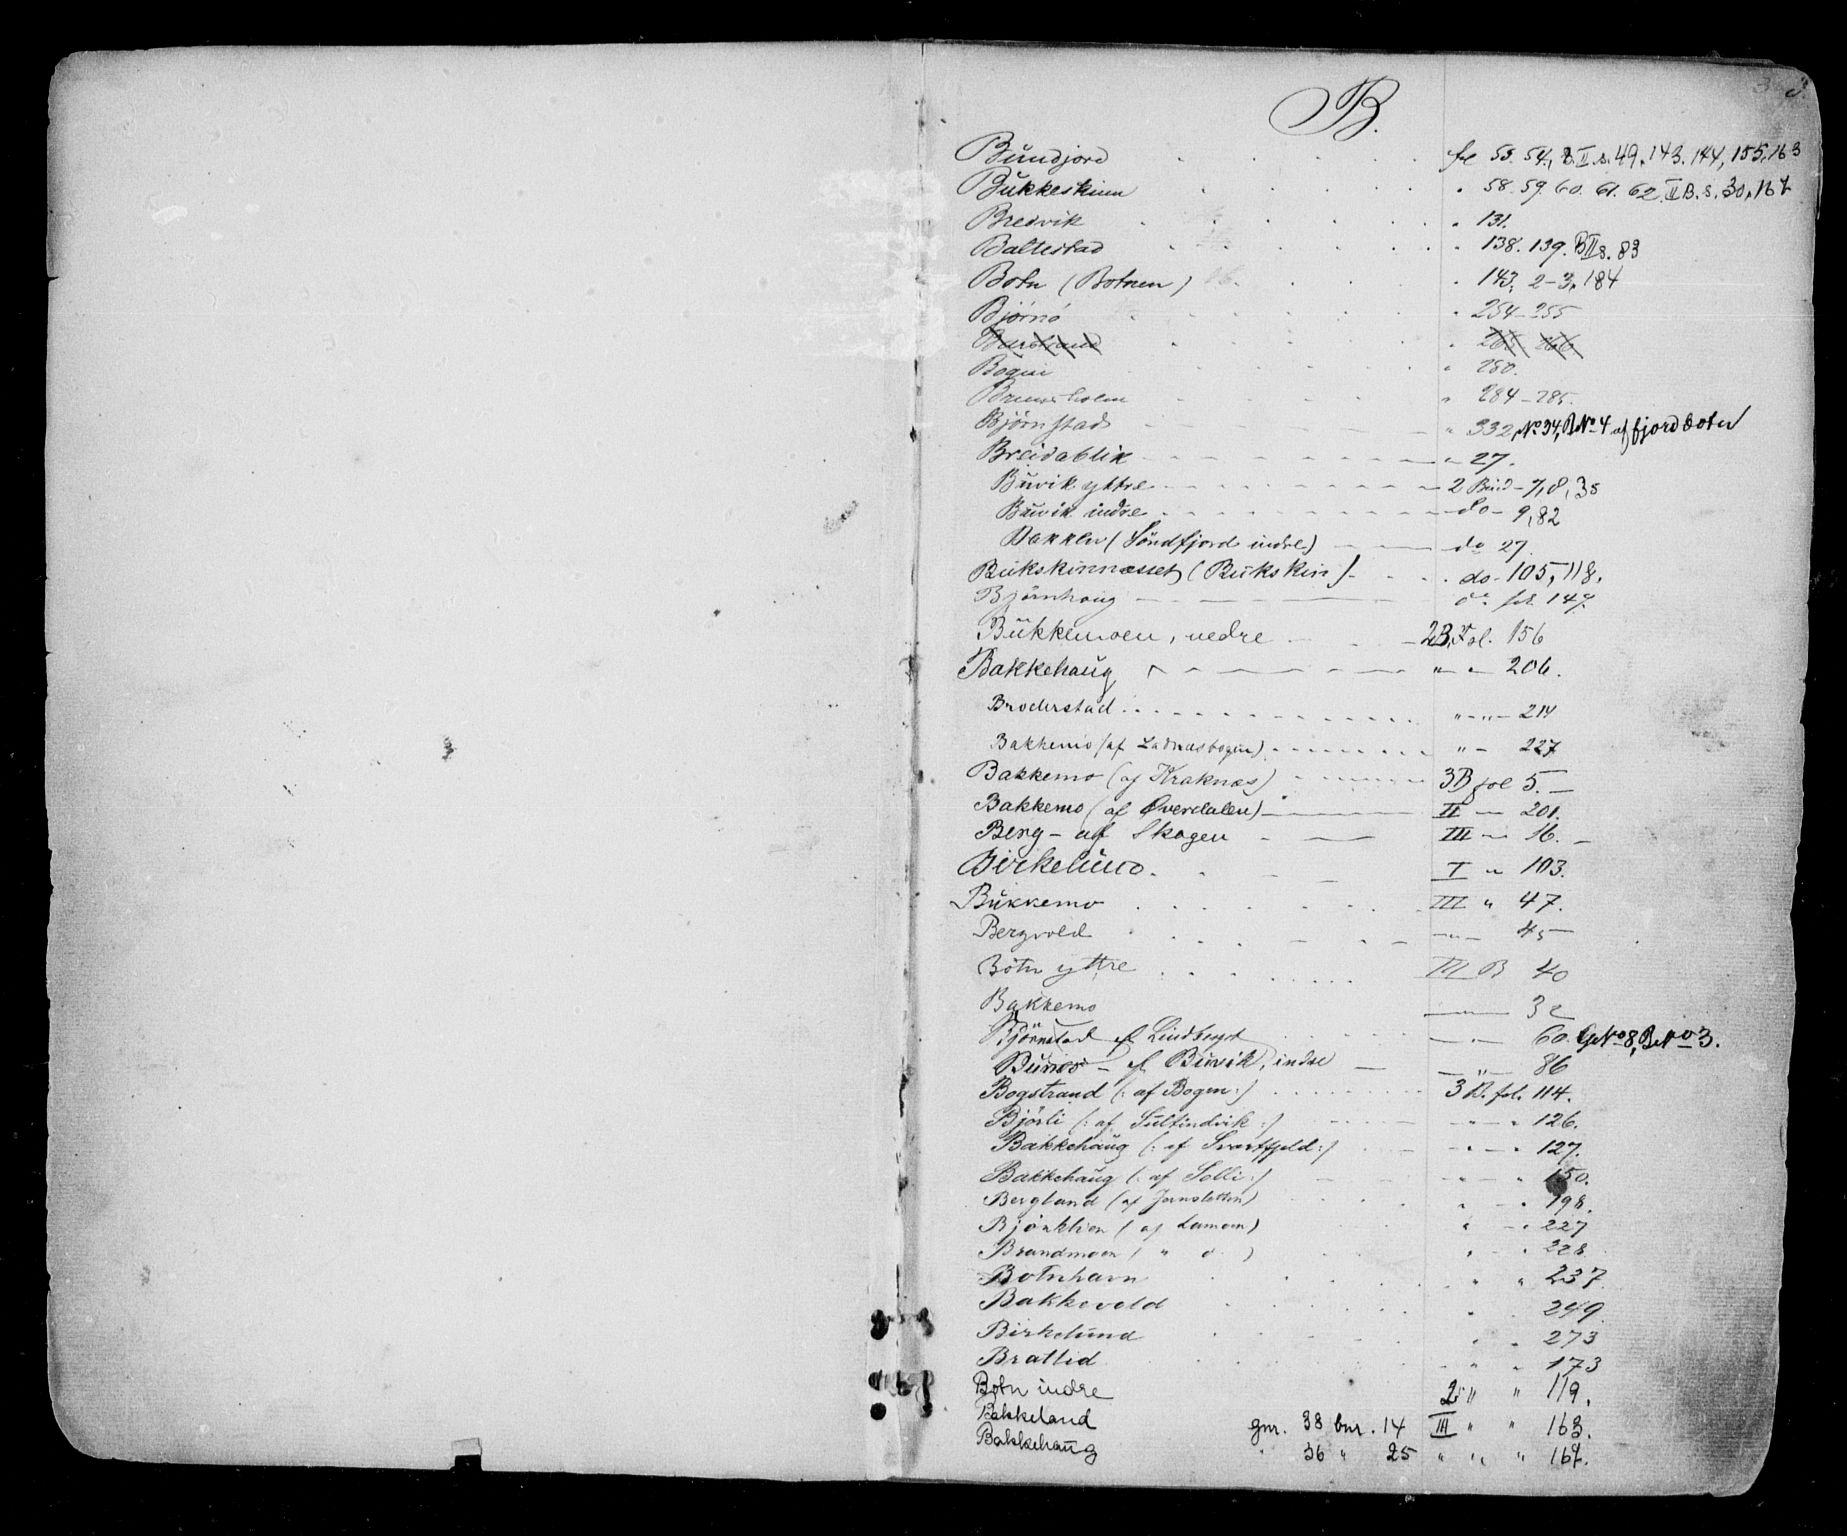 3
B.
Bundjord fol 53. 54., B. II s. 49, 143. 144, 155, 163
Bukkeskinn " 58. 59. 60. 61. 62. II B. s. 30, 167
Bredvik " 131.
Baltestad " 138. 139. B II s. 83
Botn (Botnen) " 143, 2-3, 184
Bjørnø " 254-255
" 265 266
Bogen " 280.
Brunsholm " 284-285.
Bjørnstad " 332, No. 34, B No. 4 af fjordbotn
Breidablik " 27.
Buvik yttre 2 Bind - 7, 8, 35
Buvik indre do - 9, 82
Bakken (Söndfjord indre) do 27.
Bukskinnesset (Bukskin) do - 105, 118.
Bjørnhaug do fol. 147.
Bukkemoen, nedre 2 B, Fol. 156
Bakkehaug " " 206.
Broderstad " " 214
Bakkemo (af Ladnæsbogen) " 227
Bakkemo (af Kraknæs) 3 B fol 5.
Bakkemo (af Øverdalen) II " 201.
Berg - af Skogen III " 16.
Birkelund. I " 103.
Bukkemo III " 47.
Bergvold " 45
Botn yttre III B 40
Bakkemo " 32
Bjørnstad af Lindberget " 60. G No 8, B No 3.
Bunes - af Buvik, indre " 86
Bogstrand (: af Bogen :) 3 B. fol. 114.
Bjørli (: af Sultindvik :) " " 126.
Bakkehaug (: af Svartfjeld :) " " 127.
Bakkehaug (: af Solli :) " " 150.
Bergland (af Jernsletten) " " 198.
Bjørklien (af Lamoen) " " 227
Brandmoen ( " o ) " " 228
Botnhavn " " 237.
Bakkevold " 249.
Birkelund " " 273
Brattlid " " 173
Botn indre 2 " " 119.
Bakkeland gnr. 38 bnr. 14 III " " 163.
Bakkehaug " 36 " 25 " " " 167.